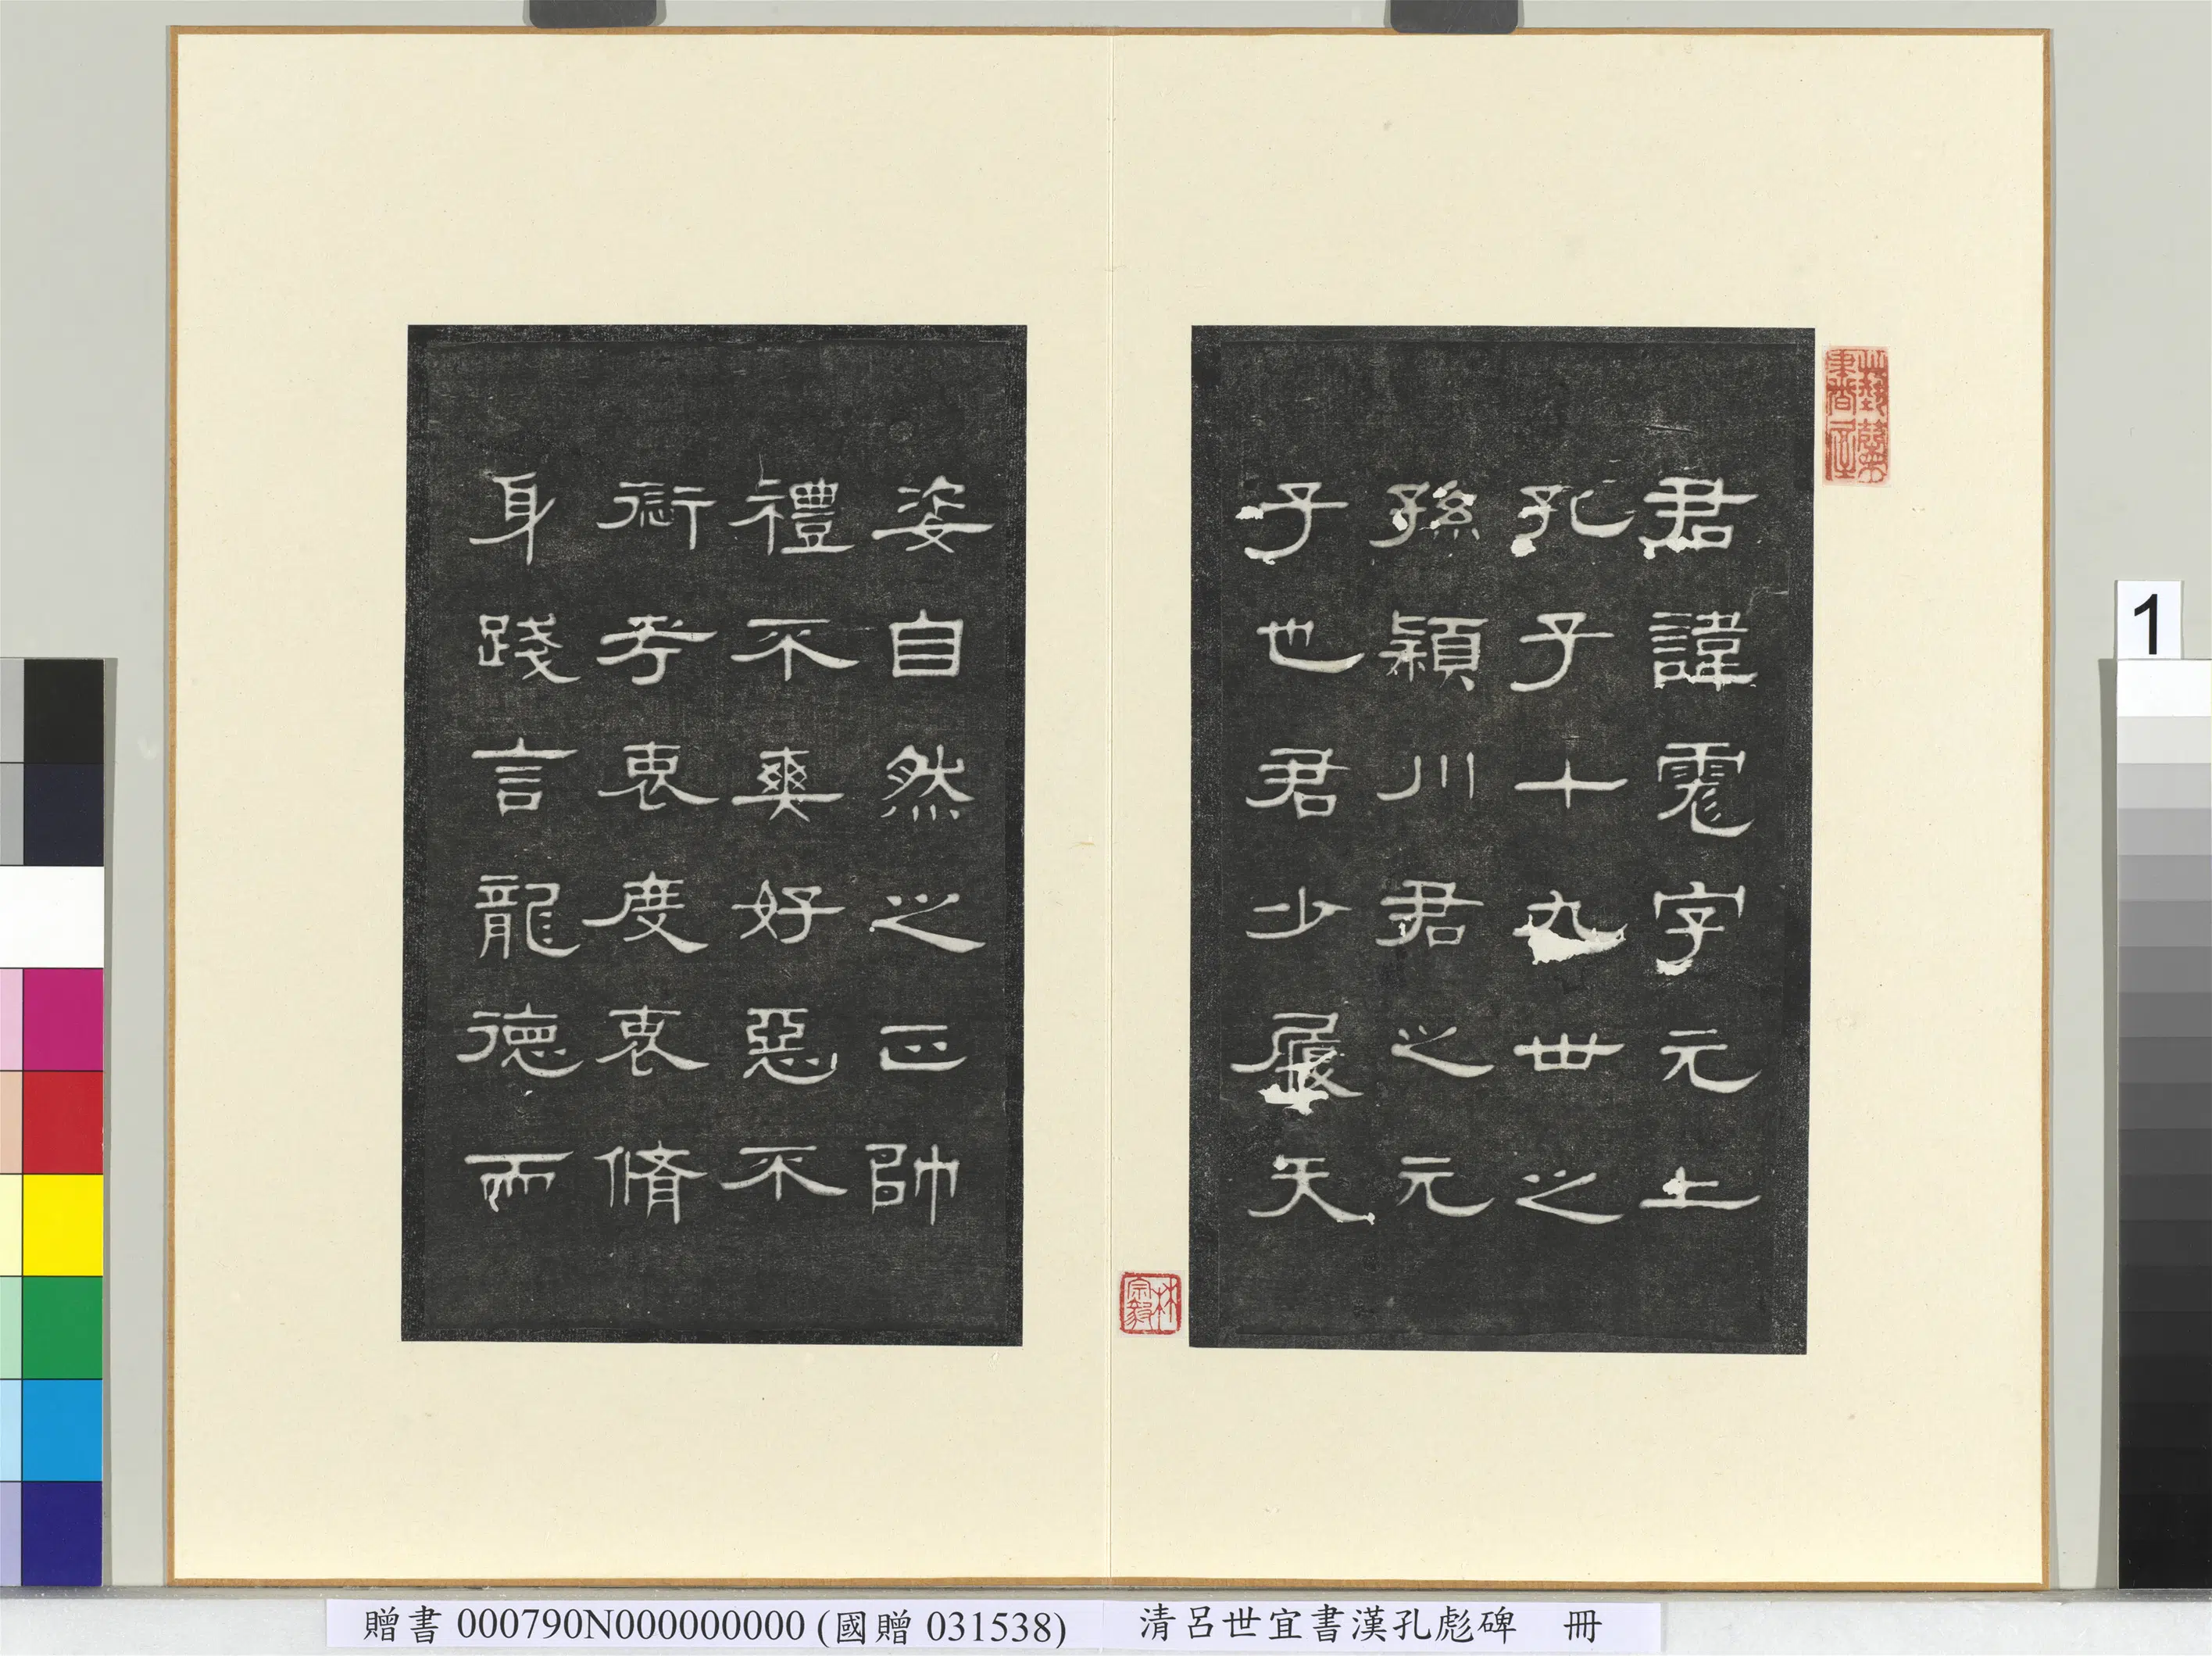 君諱彪字元上
孔子十九世之
孫穎川君之元
子也君少履天
林宗毅
姿自然之正帥
禮不爽好惡不
愆考衷度衷脩
身踐言龍德而
1
贈書 000790N000000000 (國贈 031538) 清呂世宜書漢孔彪碑 冊